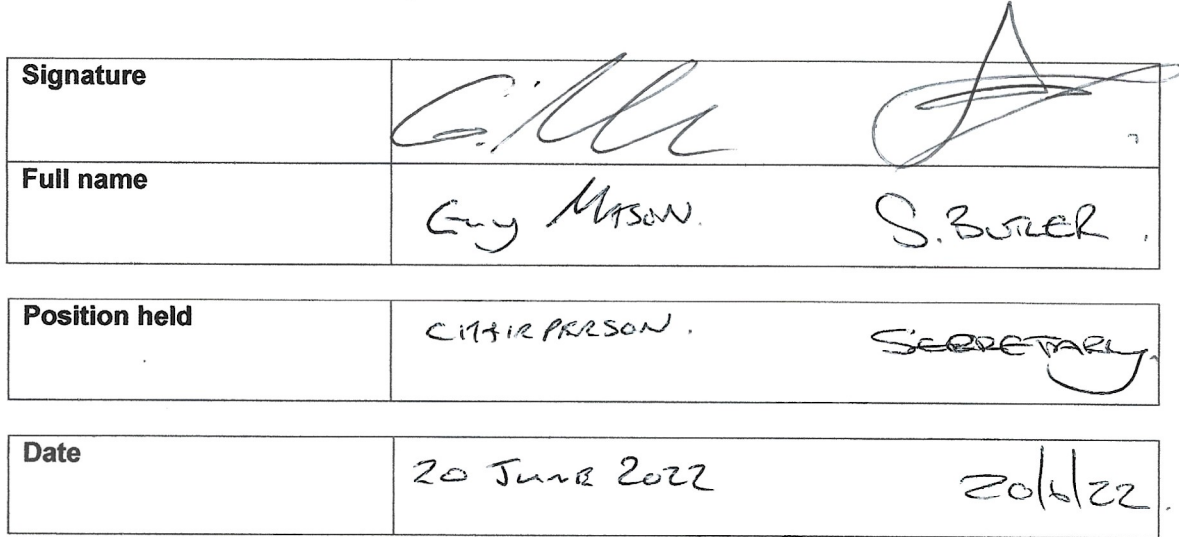 Signature
Full name Guy MASON. S. BUTLER.
Position held CHAIRPERSON. SECRETARY.
Date 20 June 2022 20/6/22.